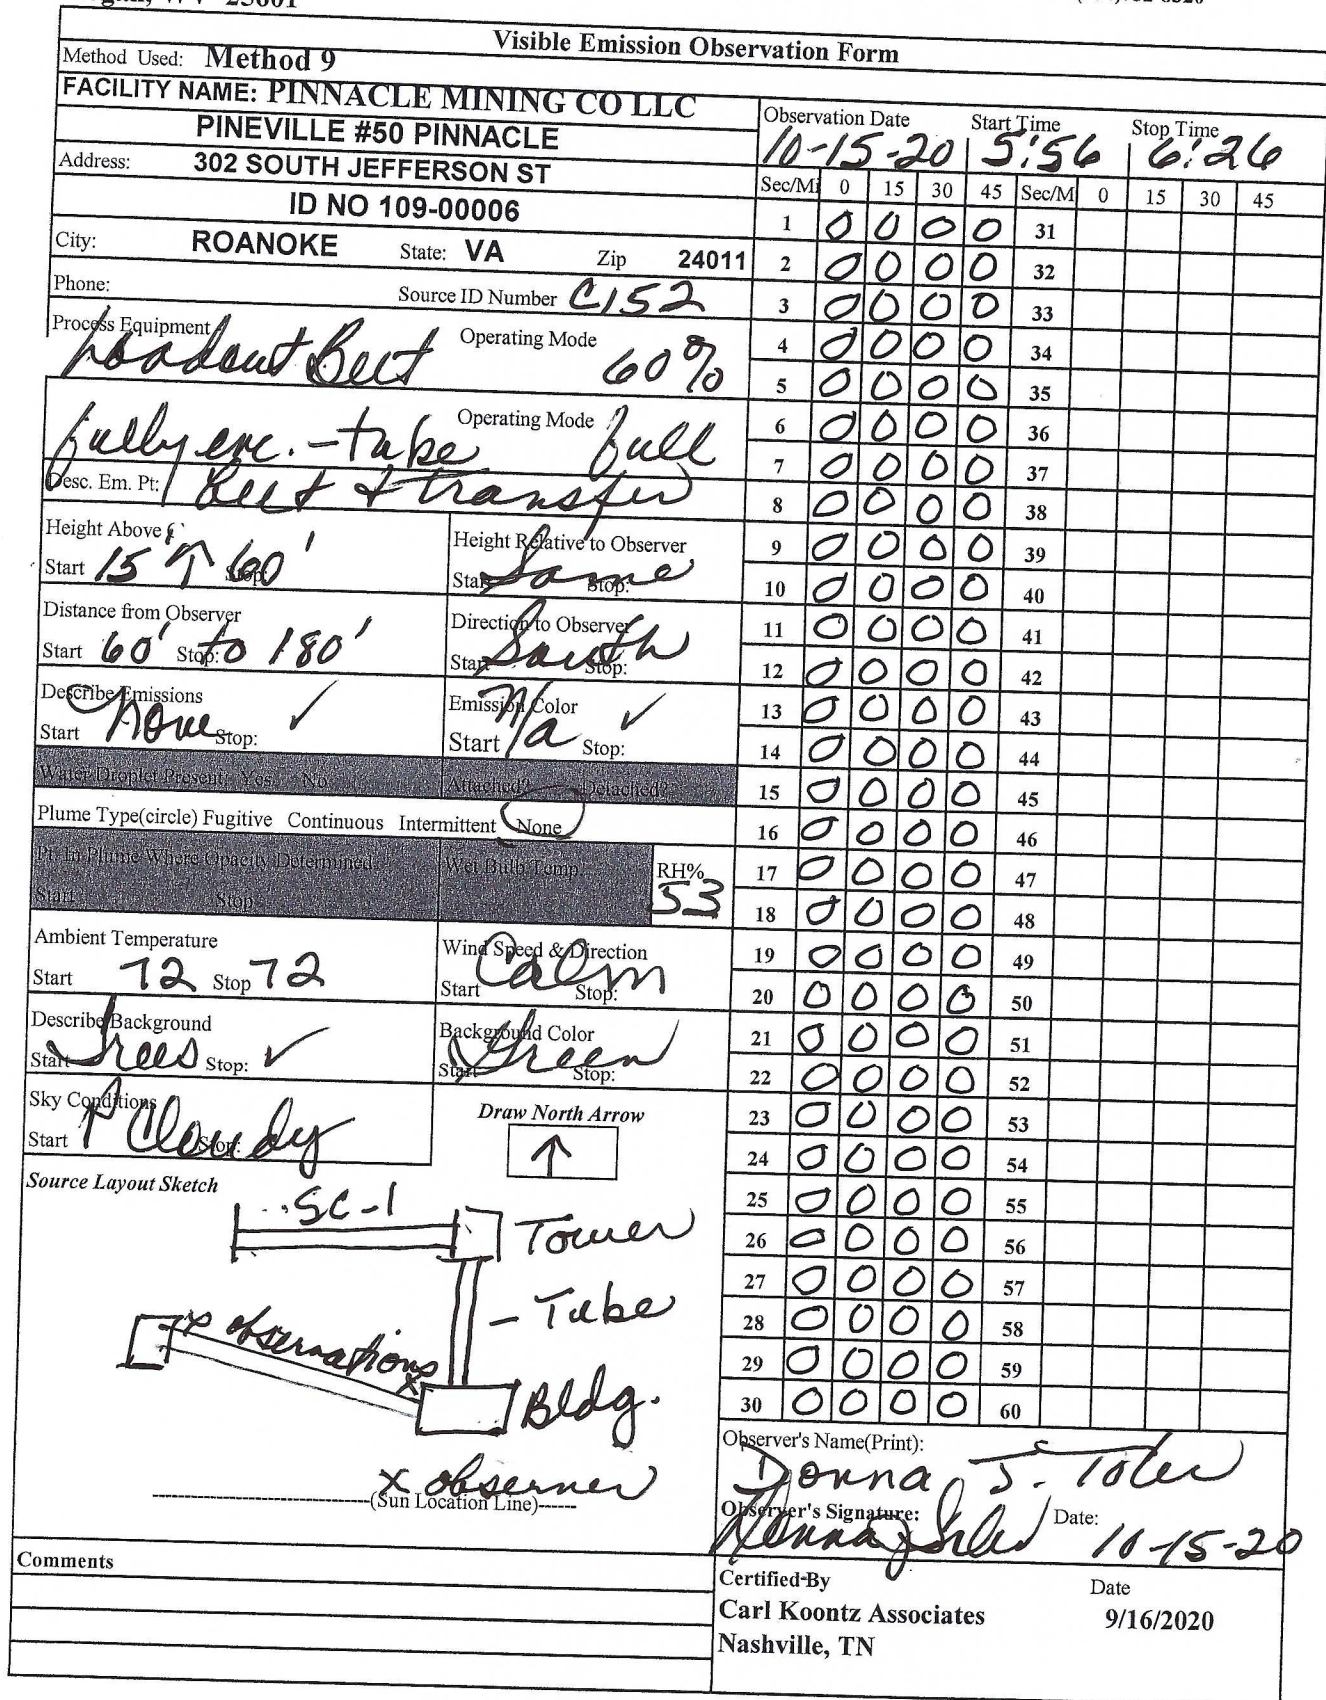 Visible Emission Observation Form
Method Used: Method 9
FACILITY NAME: PINNACLE MINING CO LLC
PINEVILLE #50 PINNACLE
Address: 302 SOUTH JEFFERSON ST
ID NO 109-00006
City: ROANOKE State: VA Zip 24011
Phone: Source ID Number C152
Process Equipment Operating Mode
Loadout Belt 60%
Operating Mode
fully enc. - tube full
Desc. Em. Pt: Belt & transfer
Height Above Height Relative to Observer
Start 15' ↑ 60' Stop: Start Same Stop:
Distance from Observer Direction to Observer
Start 60' Stop: to 180' Start South Stop:
Describe Emissions Emission Color
Start None Stop: ✓ Start N/a Stop: ✓
Water Droplet Present: Yes No Attached? Detached?
Plume Type(circle) Fugitive Continuous Intermittent None
Pt. In Plume Where Opacity Determined Wet Bulb Temp RH%
Start Stop 53
Ambient Temperature Wind Speed & Direction
Start 72 Stop 72 Start Calm Stop:
Describe Background Background Color
Start Trees Stop: ✓ Start Green Stop:
Sky Conditions
Start P Cloudy Stop:
Draw North Arrow
↑
Source Layout Sketch
SC-1
Tower
- Tube
x observations
x
Bldg.
x observer
(Sun Location Line)
Comments
Observation Date Start Time Stop Time
10-15-20 5:56 6:26
Sec/Mi 0 15 30 45 Sec/M 0 15 30 45
1 0 0 0 0 31
2 0 0 0 0 32
3 0 0 0 0 33
4 0 0 0 0 34
5 0 0 0 0 35
6 0 0 0 0 36
7 0 0 0 0 37
8 0 0 0 0 38
9 0 0 0 0 39
10 0 0 0 0 40
11 0 0 0 0 41
12 0 0 0 0 42
13 0 0 0 0 43
14 0 0 0 0 44
15 0 0 0 0 45
16 0 0 0 0 46
17 0 0 0 0 47
18 0 0 0 0 48
19 0 0 0 0 49
20 0 0 0 0 50
21 0 0 0 0 51
22 0 0 0 0 52
23 0 0 0 0 53
24 0 0 0 0 54
25 0 0 0 0 55
26 0 0 0 0 56
27 0 0 0 0 57
28 0 0 0 0 58
29 0 0 0 0 59
30 0 0 0 0 60
Observer's Name(Print):
Donna J. Toler
Observer's Signature: Date:
Donna J Toler 10-15-20
Certified By Date
Carl Koontz Associates 9/16/2020
Nashville, TN